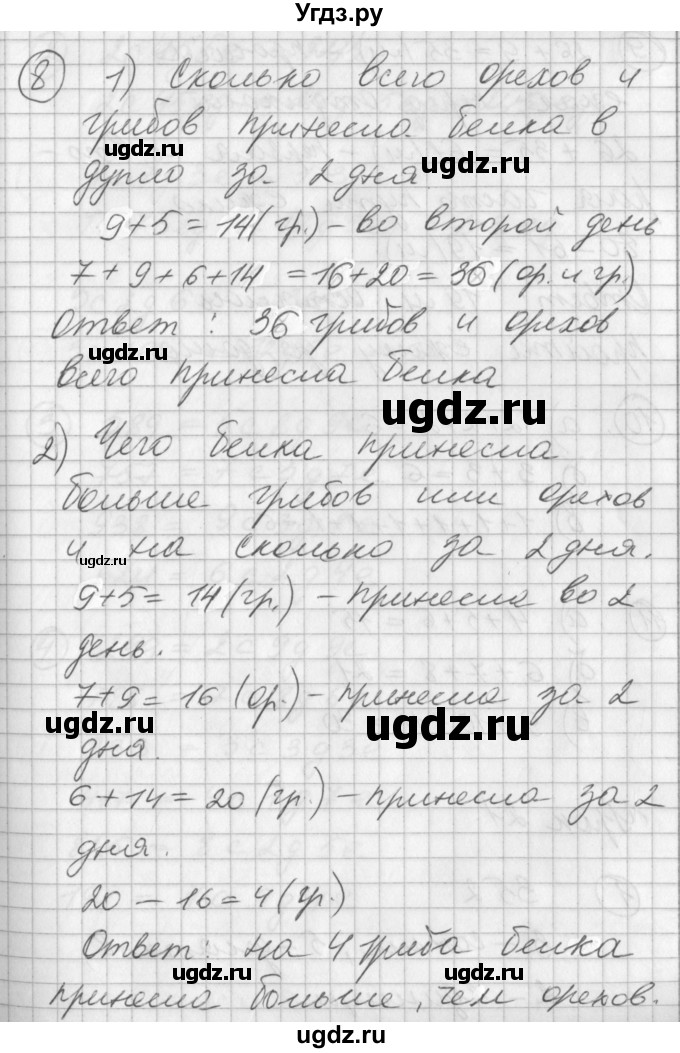 Угдз.ру
8 1) Сколько всего орехов и
грибов принесла белка в
ugdz.ru
ugdz.ru
дупло за 2 дня
9+5=14(гр.)-во второй день
7+9+6+14 =16+20=36(ор. и гр.)
Ответ: 36 грибов и орехов
ugdz.ru
всего принесла белка
ugdz.ru
2) Чего белка принесла
больше грибов или орехов
и на сколько за 2 дня.
ugdz.ru
9+5=14(гр.) - принесла во 2
день.
7+9=16 (ор.) - принесла за 2
ugdz.ru
ugdz.ru
дня.
6+14=20(гр.) - принесла за 2
дня.
20-16=4(гр.)
Ответ: на 4 гриба белка
ugdz.ru
ugdz.ru
принесла больше, чем орехов.
ugdz.ru